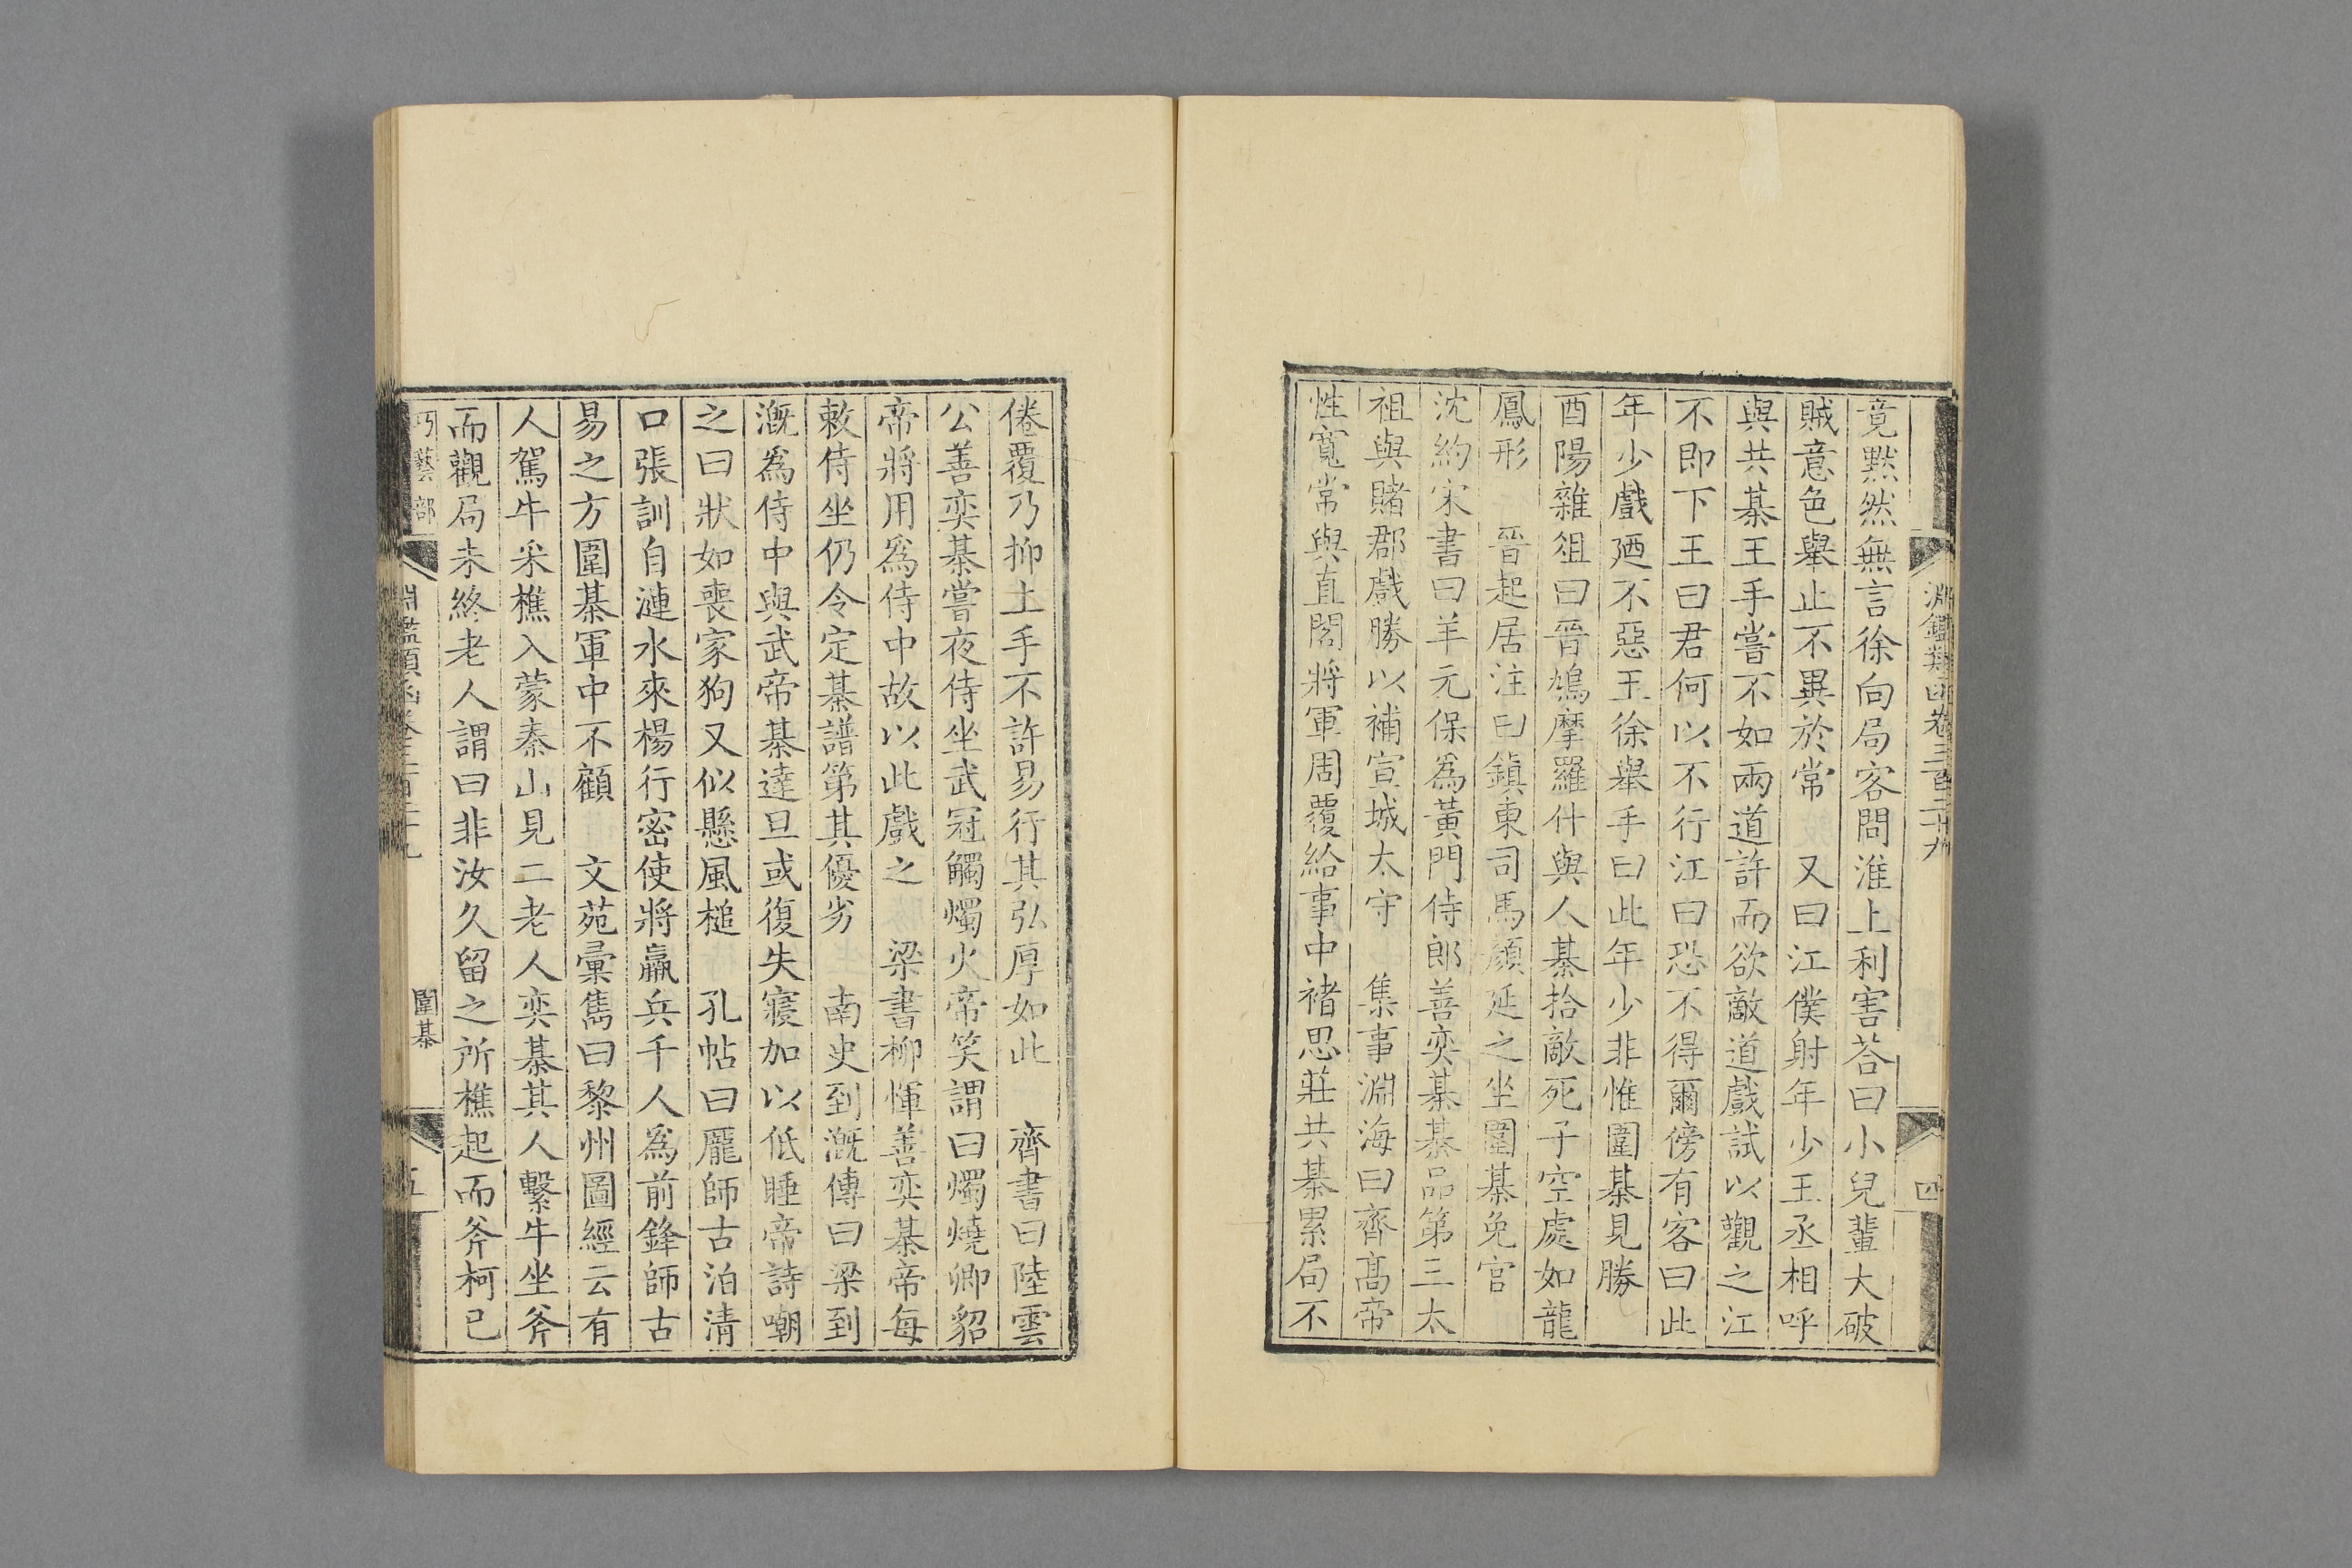 淵鑑類函卷三百二十九
四
竟默然無言徐向局客問淮上利害荅曰小兒輩大破
賊意色舉止不異於常　又曰江僕射年少王丞相呼
與共棊王手嘗不如兩道許而欲敵道戲試以觀之江
不即下王曰君何以不行江曰恐不得爾傍有客曰此
年少戲廼不惡王徐舉手曰此年少非惟圍棊見勝
酉陽雜俎曰晉鳩摩羅什與人棊拾敵死子空處如龍
鳳形　晉起居注曰鎮東司馬顏延之坐圍棊免官
沈約宋書曰羊元保為黃門侍郎善奕棊棊品第三太
祖與賭郡戲勝以補宣城太守　集事淵海曰齊高帝
性寬常與直閣將軍周覆給事中褚思莊共棊累局不
倦覆乃抑上手不許易行其弘厚如此　齊書曰陸雲
公善奕棊嘗夜侍坐武冠觸燭火帝笑謂曰燭燒卿貂
帝將用爲侍中故以此戲之　梁書柳惲善奕棊帝每
敕侍坐仍令定棊譜第其優劣　南史到溉傳曰梁到
溉爲侍中與武帝棊達旦或復失寢加以低睡帝詩嘲
之曰狀如喪家狗又似懸風槌　孔帖曰龎師古泊清
口張訓自漣水來楊行密使將羸兵千人爲前鋒師古
易之方圍棊軍中不顧　文苑彙雋曰黎州圖經云有
人駕牛采樵入蒙秦山見二老人奕棊其人繫牛坐斧
而觀局未終老人謂曰非汝久留之所樵起而斧柯已
巧藝部
淵鑑類函卷三百二十九
圍棊
五